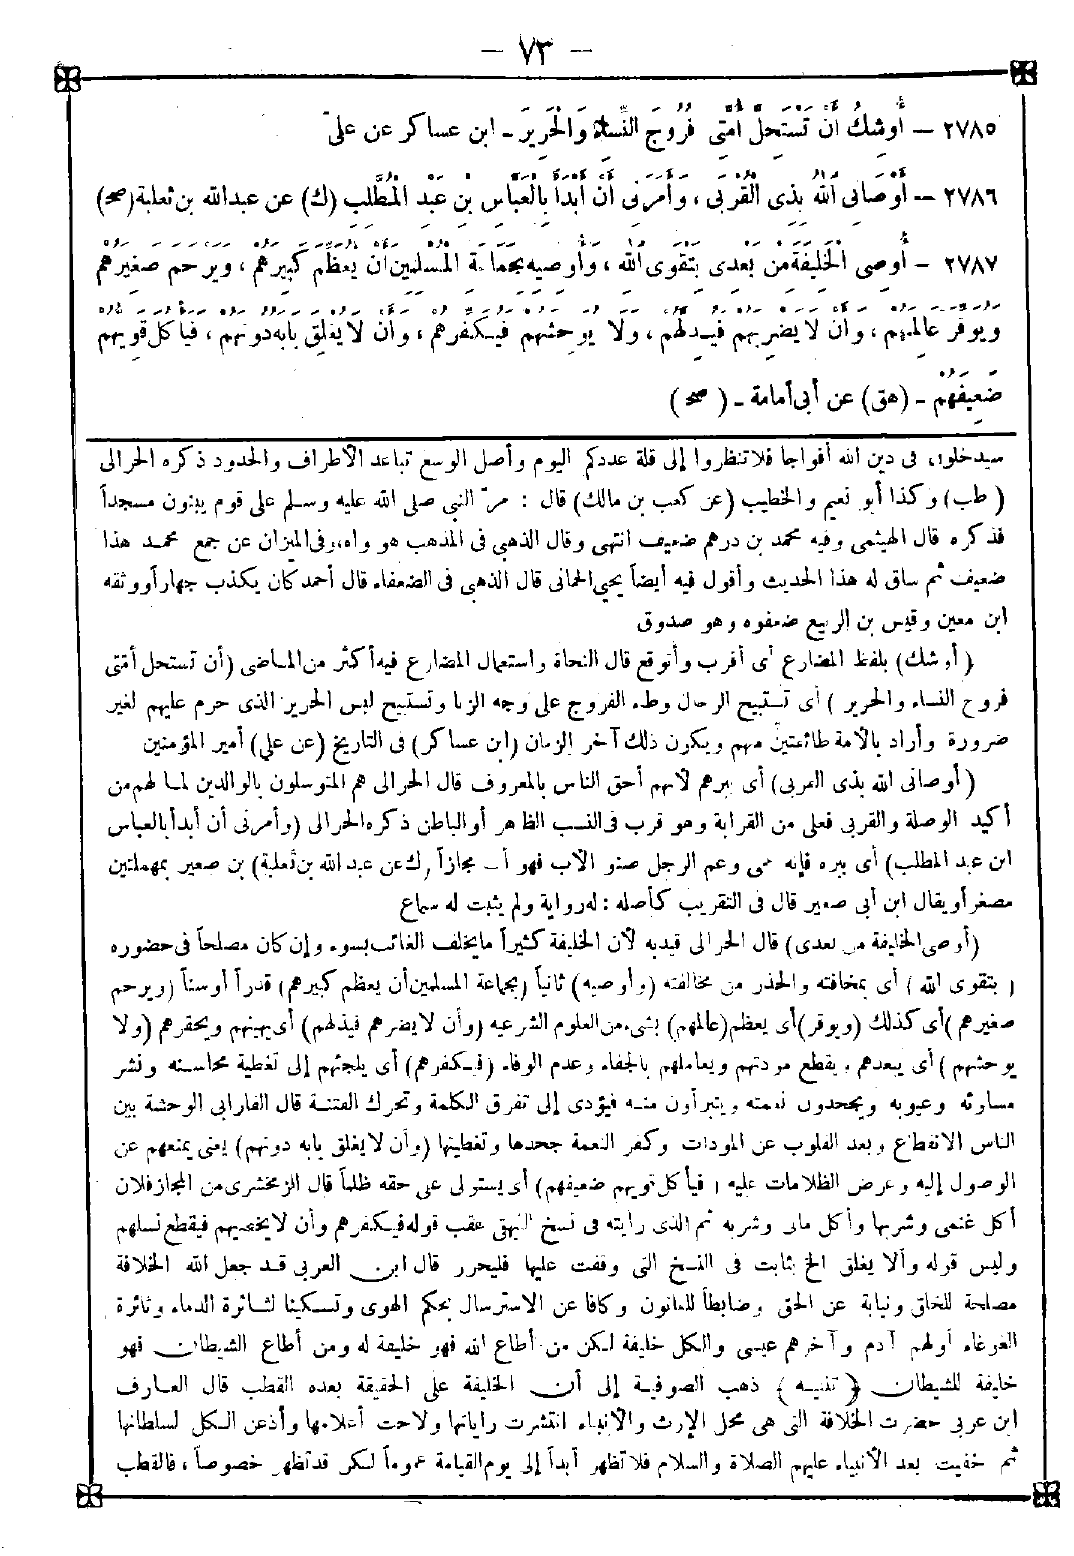 — ٧٣ —
٢٧٨٥ — أُوشِكُ أَنْ تَسْتَحِلَّ أُمَّتِي فُرُوجَ النِّسَاءِ وَالْحَرِيرَ - ابن عساكر عن علىّ
٢٧٨٦ — أَوْصَانِى اللهُ بِذِى الْقُرْبَى ، وَأَمَرَنِى أَنْ أَبْدَأَ بِالْعَبَّاسِ بْنِ عَبْدِ الْمُطَّلِبِ (ك) عن عبدالله بن ثعلبة (صح)
٢٧٨٧ - أُوصِى الْخَلِيفَةَ مِنْ بَعْدِى بِتَقْوَى اللهِ ، وَأُوصِيهِ بِجَمَاعَةِ الْمُسْلِمِينَ أَنْ يُعَظِّمَ كَبِيرَهُمْ ، وَيَرْحَمَ صَغِيرَهُمْ
وَيُوَقِّرَ عَالِمَهُمْ ، وَأَنْ لَا يَضْرِبَهُمْ فَيُذِلَّهُمْ ، وَلَا يُوحِشَهُمْ فَيُكْفِرَهُمْ ، وَأَنْ لَا يُغْلِقَ بَابَهُ دُونَهُمْ ، فَيَأْكُلَ قَوِيُّهُمْ
ضَعِيفَهُمْ - (هق) عن أبى أمامة - (صح)
سيدخلون فى دين الله أفواجا فلا تنظروا إلى قلة عددكم اليوم وأصل الوسع تباعد الأطراف والحدود ذكره الحرالى
(طب) وكذا أبو نعيم والخطيب (عن كعب بن مالك) قال : مرّ النبى صلى الله عليه وسلم على قوم يبنون مسجداً
فذكره قال الهيثمى وفيه محمد بن درهم ضعيف انتهى وقال الذهبى فى المذهب هو واه، وفى الميزان عن جمع محمد هذا
ضعيف ثم ساق له هذا الحديث وأقول فيه أيضاً يحيى الحمانى قال الذهبى فى الضعفاء قال أحمد كان يكذب جهاراً ووثقه
ابن معين وقيس بن الربيع ضعفوه وهو صدوق
(أوشك) بلفظ المضارع أى أقرب وأتوقع قال النحاة واستعمال المضارع فيه أكثر من الماضى (أن تستحل أمتى
فروج النساء والحرير) أى تستبيح الرجال وطء الفروج على وجه الزنا وتستبيح لبس الحرير الذى حرم عليهم لغير
ضرورة وأراد بالأمة طائفتين منهم ويكون ذلك آخر الزمان (ابن عساكر) فى التاريخ (عن على) أمير المؤمنين
(أوصانى الله بذى القربى) أى ببرهم لأنهم أحق الناس بالمعروف قال الحرالى هم المتوسلون بالوالدين لما لهم من
أكيد الوصلة والقربى فعلى من القرابة وهو قرب فى النسب الظاهر أو الباطن ذكره الحرالى (وأمرنى أن أبدأ بالعباس
ابن عبد المطلب) أى ببره فإنه عمى وعم الرجل صنو الأب فهو أب مجازاً (ك عن عبد الله بن ثعلبة) بن صعير بمهملتين
مصغر أو يقال ابن أبى صعير قال فى التقريب كأصله : له رواية ولم يثبت له سماع
(أوصى الخليفة من بعدى) قال الحرالى قيد به لأن الخليفة كثيراً ما يخلف الغائب بسوء وإن كان مصلحاً فى حضوره
(بتقوى الله) أى بمخافته والحذر من مخالفته (وأوصيه) ثانياً (بجماعة المسلمين أن يعظم كبيرهم) قدراً أو سناً (ويرحم
صغيرهم) أى كذلك (ويوقر) أى يعظم (عالمهم) بشىء من العلوم الشرعيه (وأن لا يضربهم فيذلهم) أى يهينهم ويحقرهم (ولا
يوحشهم) أى يبعدهم ويقطع مودتهم ويعاملهم بالجفاء وعدم الوفاء (فيكفرهم) أى يلجئهم إلى تغطية محاسنه ونشر
مساوئه وعيوبه ويجحدون نعمته ويتبرأون منه فيؤدى إلى تفرق الكلمة وتحرك الفتنة قال الفارابى الوحشة بين
الناس الانقطاع وبعد القلوب عن المودات وكفر النعمة جحدها وتغطيتها (وأن لا يغلق بابه دونهم) يعنى يمنعهم عن
الوصول إليه وعرض الظلامات عليه (فيأكل قويهم ضعيفهم) أى يستولى على حقه ظلماً قال الزمخشرى من المجاز فلان
أكل غنمى وشربها وأكل مالى وشربه ثم الذى رأيته فى نسخ البيهقى عقب قوله فيكفرهم وأن لا يخصيهم فيقطع نسلهم
وليس قوله وألا يغلق الخ بثابت فى النسخ التى وقفت عليها فليحرر قال ابن العربى قد جعل الله الخلافة
مصلحة للخلق ونيابة عن الحق وضابطاً للقانون وكافا عن الاسترسال بحكم الهوى وتسكينا لثائرة الدماء وثائرة
الغوغاء أولهم آدم وآخرهم عيسى والكل خليفة لكن من أطاع الله فهو خليفة له ومن أطاع الشيطان فهو
خليفة للشيطان (تنبيه) ذهب الصوفية إلى أن الخليفة على الحقيقة بعده القطب قال العارف
ابن عربى حضرت الخلافة التى هى محل الإرث والأنبياء انتشرت راياتها ولاحت أعلامها وأذعن الكل لسلطانها
ثم خفيت بعد الأنبياء عليهم الصلاة والسلام فلا تظهر أبداً إلى يوم القيامة عموماً لكن قد تظهر خصوصاً ، فالقطب